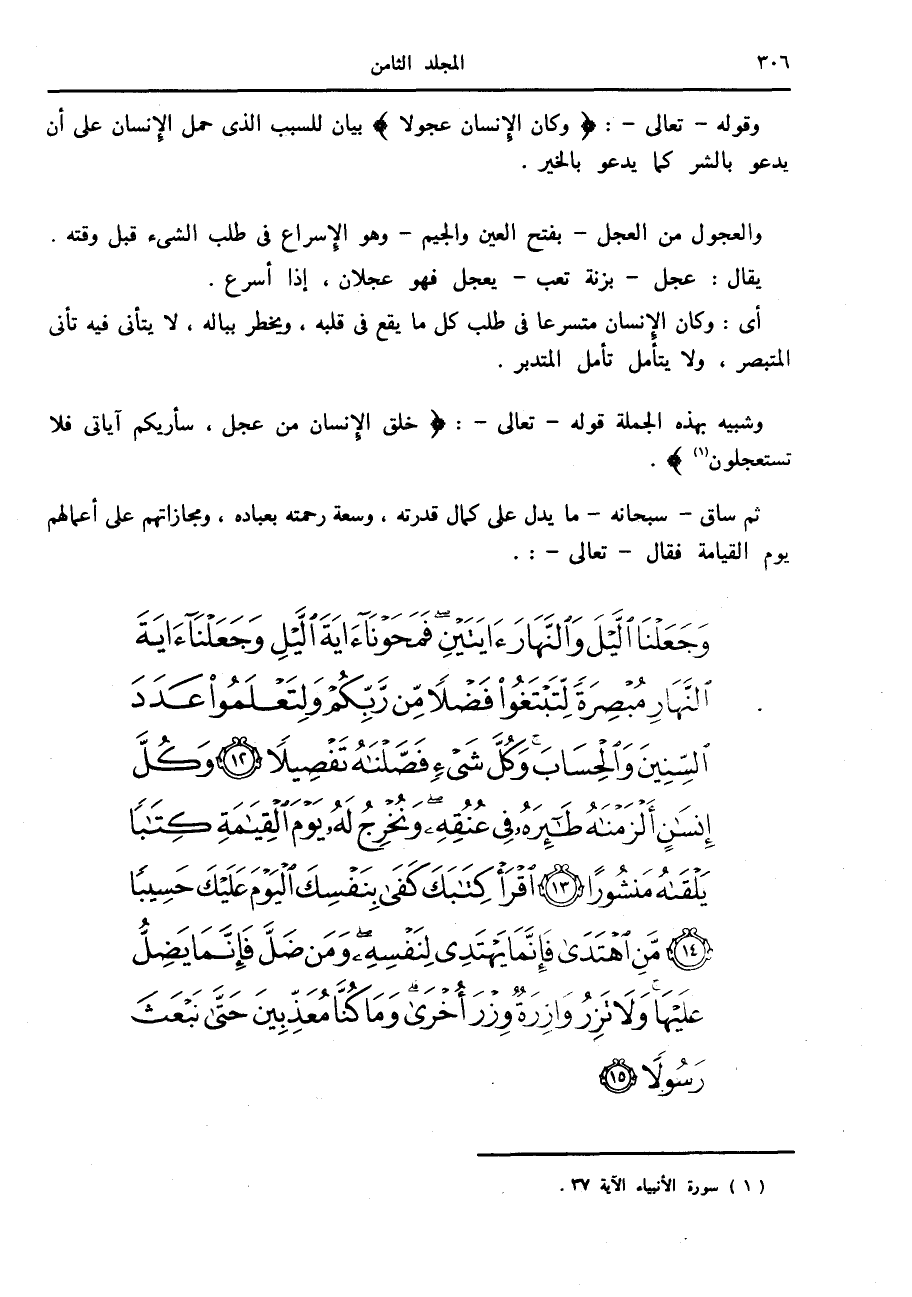 ٣٠٦ المجلد الثامن
وقوله – تعالى – : ﴿ وكان الإنسان عجولا ﴾ بيان للسبب الذى حمل الإنسان على أن
يدعو بالشر كما يدعو بالخير .
والعجول من العجل – بفتح العين والجيم – وهو الإسراع فى طلب الشىء قبل وقته .
يقال : عجل – بزنة تعب – يعجل فهو عجلان ، إذا أسرع .
أى : وكان الإنسان متسرعا فى طلب كل ما يقع فى قلبه ، ويخطر بباله ، لا يتأنى فيه تأنى
المتبصر ، ولا يتأمل تأمل المتدبر .
وشبيه بهذه الجملة قوله – تعالى – : ﴿ خلق الإنسان من عجل ، سأريكم آياتى فلا
تستعجلون(١) ﴾ .
ثم ساق – سبحانه – ما يدل على كمال قدرته ، وسعة رحمته بعباده ، ومجازاتهم على أعمالهم
يوم القيامة فقال – تعالى – : .
وَجَعَلْنَا ٱلَّيْلَ وَٱلنَّهَارَ ءَايَتَيْنِ ۖ فَمَحَوْنَآ ءَايَةَ ٱلَّيْلِ وَجَعَلْنَآ ءَايَةَ
ٱلنَّهَارِ مُبْصِرَةً لِّتَبْتَغُوا۟ فَضْلًا مِّن رَّبِّكُمْ وَلِتَعْلَمُوا۟ عَدَدَ
ٱلسِّنِينَ وَٱلْحِسَابَ ۚ وَكُلَّ شَىْءٍ فَصَّلْنَٰهُ تَفْصِيلًا ١٢ وَكُلَّ
إِنسَٰنٍ أَلْزَمْنَٰهُ طَٰٓئِرَهُۥ فِى عُنُقِهِۦ ۖ وَنُخْرِجُ لَهُۥ يَوْمَ ٱلْقِيَٰمَةِ كِتَٰبًا
يَلْقَىٰهُ مَنشُورًا ١٣ ٱقْرَأْ كِتَٰبَكَ كَفَىٰ بِنَفْسِكَ ٱلْيَوْمَ عَلَيْكَ حَسِيبًا
١٤ مَّنِ ٱهْتَدَىٰ فَإِنَّمَا يَهْتَدِى لِنَفْسِهِۦ ۖ وَمَن ضَلَّ فَإِنَّمَا يَضِلُّ
عَلَيْهَا ۚ وَلَا تَزِرُ وَازِرَةٌ وِزْرَ أُخْرَىٰ ۗ وَمَا كُنَّا مُعَذِّبِينَ حَتَّىٰ نَبْعَثَ
رَسُولًا ١٥
( ١ ) سورة الأنبياء الآية ٣٧ .